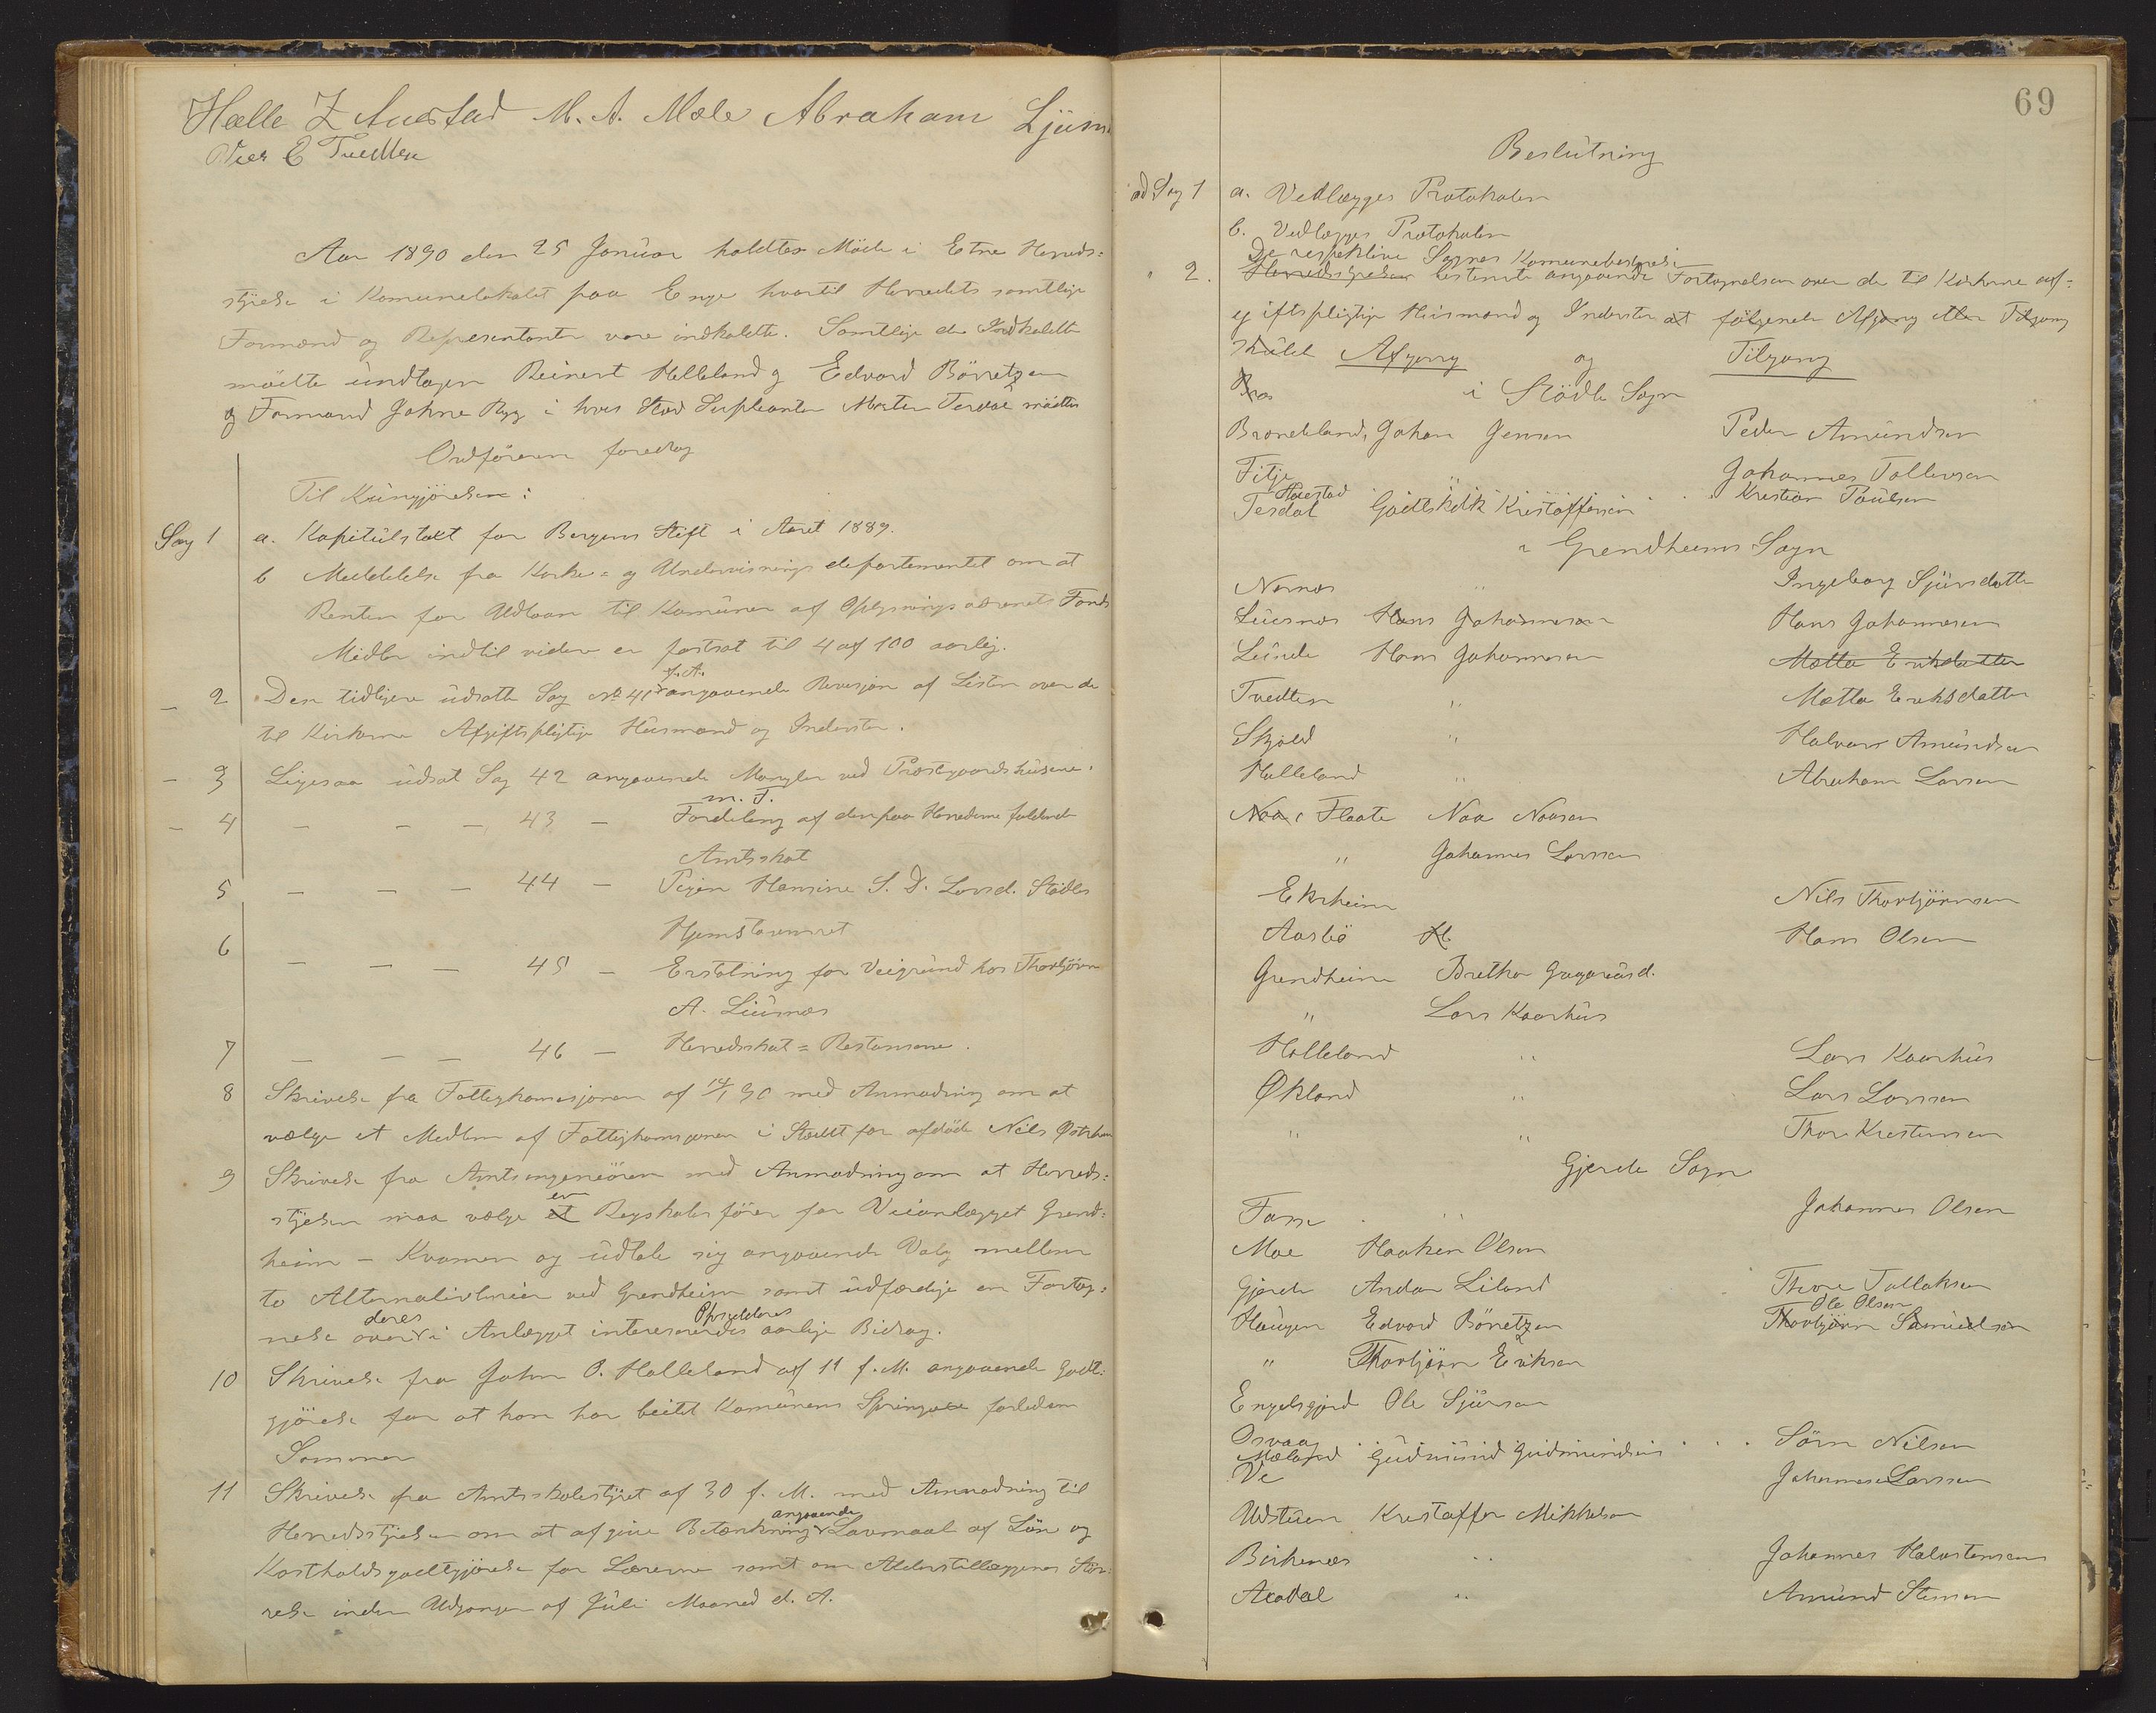 Helle Z Austad M. A. Mæle Abraham
Peder E Tvedten
Aar 1890 den 25 Januar holdtes Møde i Etne Herreds=
styrelse i Komunelokalet paa Enge hvortil Herredets samtlige
Formænd og Representanter vare indkaldte. Samtlige de Indkaldte
mödte undtagen Reinert Helleland og Edvard Börretzen
og Formand Johne Ryg i hvis Sted Supleanten Morten Terdal mödte
Ordföreren foredrog
Til Kungjörelse:
Sag 1 a. Kapitulstakt for Bergens Stift i Aaret 1889.
b Meddelelse fra Kirke= og Undervisnings departementet om at
Renten for Udlaan til Komuner af Oplysningsvæsenets Fonds
Midler indtil videre er fastsat til 4 af 100 aarlig.
f. A.
— 2 Den tidligere udsatte Sag No 41 angaaende Revisjon af Listen over de
til Kirkerne Afgiftspligtige Husmænd og Inderster.
— 3 Ligesaa udsat Sag 42 angaaende Mangler ved Præstgaardshusene.
m. F.
— 4 — — — 43 — Fordeling af den paa Herrederne faldende
Amtsskat
5 — — — 44 — Pigen Hansine S. D. Larsd. Stödles
Hjemstavnsret
6 — — — 45 — Erstatning for Veigrund hos Thorbjörn
A. Liusnæs
7 — — — 46 — Herredsskat= Restansene.
8 Skrivelse fra Fattigkomisjonen af 14/1 90 med Anmodning om at
vælge et Medlem af Fattigkomisjonen i Stedet for afdöde Nils
9 Skrivelse fra Amtsingeniören med Anmodning om at Herreds=
styrelsen maa vælge et en Regnskabsförer for Veianlægget Grind=
heim — Kvamen og udtale sig angaaende Valg mellem
to Alternativlinier ved Grindheim samt udfærdige en Forteg=
deres Opsidderes
nelse over i Anlægget interesserendes aarlige Bidrag.
10 Skrivelse fra John O. Halleland af 11 f. M. angaaende Godt=
gjörelse for at han har beitet Komunens Springoxe forleden
Sommer
11 Skrivelse fra Amtsskolestyret af 30 f. M. med Anmodning til
angaaende
Herredsstyrelsen om at afgive Betænkning Lavmaal af Lön og
Kostholdsgodtgjörelse for Lærerne samt om Alderstillæggenes Stör=
relse inden Udgangen af Juli Maaned d. A.
69
Beslutning
ad Sag 1 a. Vedlægges Protokolen
b. Vedlægges Protokolen
De respektive Sognes Komunebestyrelse
" 2. Herredsstyrelsen bestemte angaaende Fortegnelsen over de til Kirkerne af=
giftspligtige Husmænd og Inderster at fölgende Afgang eller Tilgang
skulde Afgang og Tilgang
i Stödle Sogn
Brændeland, Johan Jensen Peder Amundsen
Fitje " Johannes Tollevsen
Haestad
Terdal Godtskalk Kristoffersen Kristian Poulsen
i Grendheims Sogn
Nernæs " Ingeborg Sjursdatter
Liusnæs Hans Johannesen Hans Johannesen
Leinde Hans Johannesen Matta Eriksdatter
Tvedten " Mætta Eriksdatter
Skjold " Halvar Amundsen
Halleland " Abraham Larsen
Naa i Flaate Naa Naasen
" Johannes Larsen
Ekrheim Nils Thorbjörnsen
Aasbö Hans Olsen
Grendheim Bretha
" Lars Kaarhus
Halleland " Lars Kaarhus
Økland " Lars Larsen
" " Thore Krestensen
Gjerde Sogn
Tom " Johannes Olsen
Moe Haaken Olson
Gjerde Andor Liland Thore Tollaksen
Ole Olsen
Haugen Edvard Börretzen Thorbjörn Samuelsen
" Thorbjörn Eriksen
Engelsgjerd Ole Sjursen
Osvaag Sörn Nilsen
Mæland Gudmund Gudmundsen
Ve Johannes Larsen
Udstuen Kristoffer Mikkelsen
Birkenæs " Johannes Halvstensen
Aadal " Amund Stensen